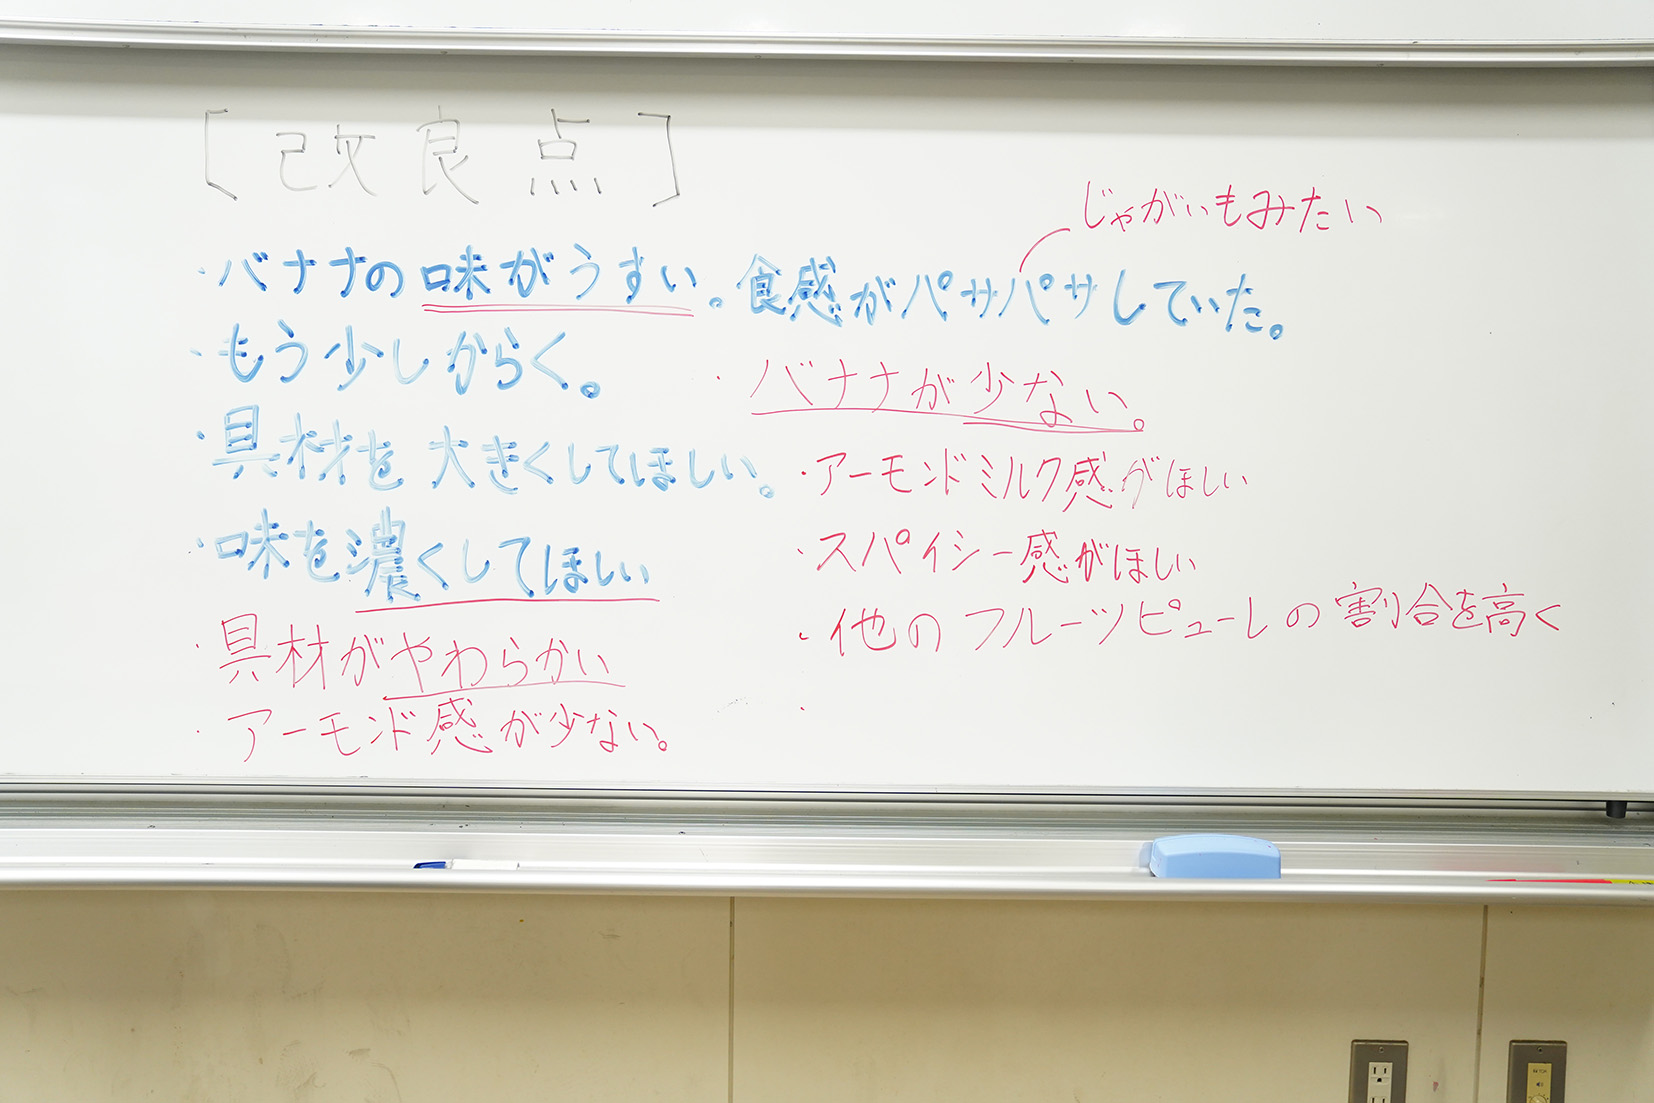 [改良点]
・バナナの味がうすい。
・もう少しからく。
・具材を大きくしてほしい。
・味を濃くしてほしい
・具材がやわらかい
・アーモンド感が少ない。
じゃがいもみたい
・食感がパサパサしていた。
・バナナが少ない。
・アーモンドミルク感がほしい
・スパイシー感がほしい
・他のフルーツピューレの割合を高く
・